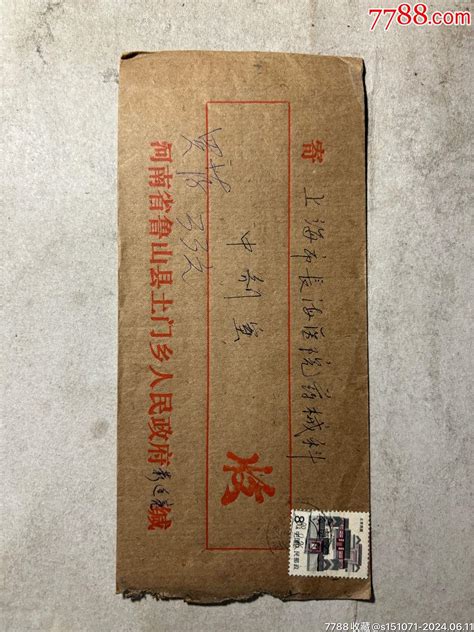 7788.com
寄 上海市长海医院药械科
中制
收
河南省鲁山县土门乡人民政府 缄
8分
中国人民邮政
7788收藏@s151071-2024.06.11